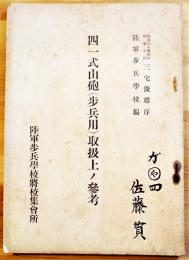 三宅俊雄序
陸軍歩兵學校編
四一式山砲(歩兵用)取扱上ノ參考
陸軍歩兵學校將校集會所
佐藤